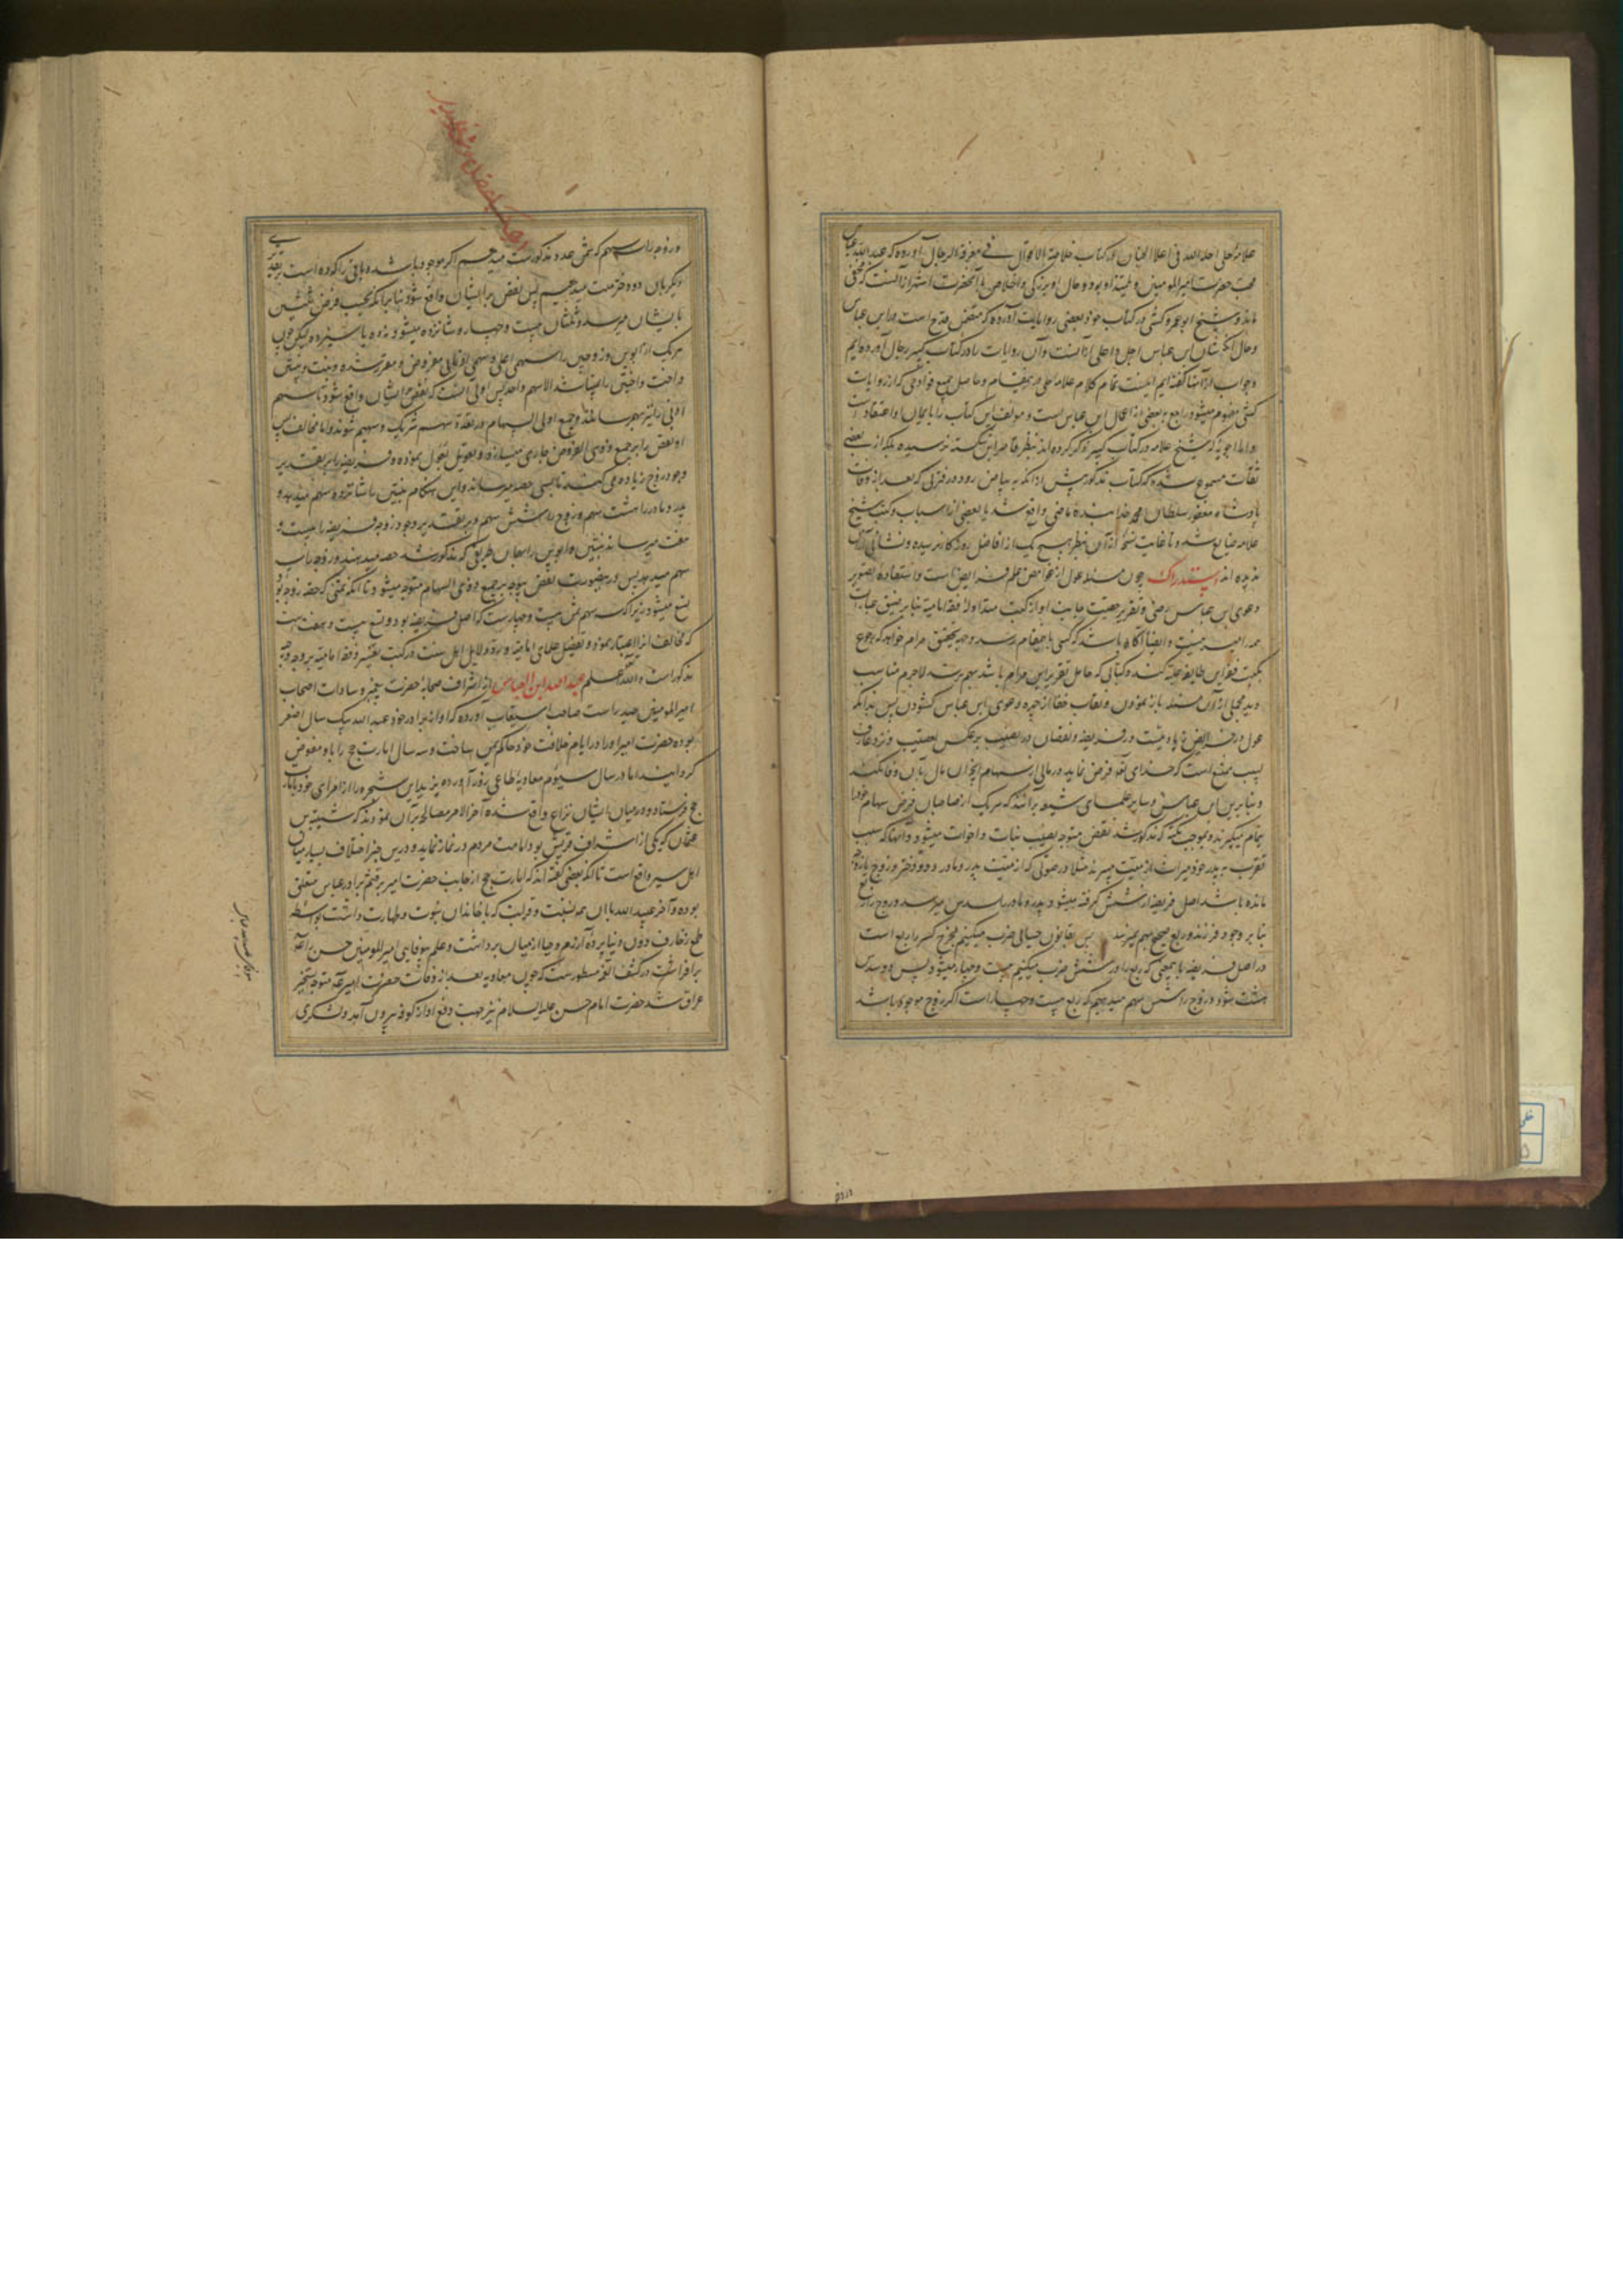 علامه حلی احله الله فی اعلا الجنان در کتاب خلاصة الاقوال فی معرفة الرجال آورده که عبدالله عباس
محب حضرت امیرالمومنین و تلمیذ او بود و حال او در بزرگی و اخلاص با آنحضرت اشهر از آنست که مخفی
ماند و شیخ ابو عمرو کشی در کتاب خود بعضی روایات آورده که متضمن قدح است در ابن عباس
و حال آنکه شان ابن عباس اجل و اعلی از آنست و آن روایات را در کتاب کبیر رجال آورده‌ایم
و جواب از آنها گفته‌ایم اینست تمام کلام علامه حلی در این مقام و حاصل جمیع قوادحی که از روایات
کشی مفهوم میشود راجع به بعضی از اعمال ابن عباس است و مولف این کتاب را بایمان و اعتقاد
و اما اجوبه که شیخ علامه در کتاب کبیر ذکر کرده‌اند بنظر قاصر این شکسته نرسیده بلکه از بعضی
ثقات مسموع شده که کتاب مذکور پیش از آنکه به بیاض رود در فترتی که بعد از وفات
پادشاه مغفور سلطان محمد خدابنده ماضی واقع شد با بعضی از اسباب و کتب شیخ
علامه ضایع شد و تا غایت نسخه از آن بنظر هیچ یک از افاضل روزگار نرسیده و نشانی از آن
ندیده‌اند استدراک چون مسئله عول از غوامض علم فرایض است و استفاده تصویر
دعوی ابن عباس رضی و تقریر حقیت جانب او از کتب متداوله فقه امامیه بنابر ضیق عبارات
همه را میسر نیست و ایضا آگاه باشد که کسی باین مقام رسد و جهة تحقیق مرام خواهد که رجوع
بکتب فقه این طایفه جلیله کند و کتابی که حامل تقریر این مرام باشد بهم نرسد لاجرم مناسب
دید مجملی از آن مسئله باز نمودن و نقاب خفا از چهره دعوی ابن عباس گشودن پس بدانکه
عول در فرایض زیادتیست در فریضه و نقصان در نصیب برعکس تعصیب و نزد عارف
لبیب ممتنع است که خدای تعالی فرض نماید در مالی از سهام آنچه آن مال بآن وفا نکند
و بنابرین ابن عباس و سایر علمای شیعه برآنند که هر یک از صاحبان فرض سهام خود را
بتمام میگیرند و بموجب نکته که مذکور شد نقص متوجه نصیب بنات و اخوات میشود و آنها که بسبب
تقرب به پدر خود میراث از میت میبرند مثلا در صورتی که از میت پدر و مادر و دو دختر و زوج یا زوجه
مانده باشد اصل فریضه از شش گرفته میشود و پدر و مادر را سدس میرسد و زوج را ربع
بنابر وجود فرزند و ربع صحیح بهم نمیرسد پس بقانون حسابی ضرب میکنیم مخرج کسر را که ربع است
در اصل فریضه باین معنی که ربع را در شش ضرب میکنیم بیست و چهار میشود پس دو سدس
هشت شود و زوج را شش سهم میدهیم که ربع بیست و چهار است اگر زوج موجود باشد
و زوجه را سه سهم که ثمن عدد مذکورست میدهیم اگر موجود باشد و باقی را که ده است بر تقدیری
دیگر بآن دو دختر میدهیم پس نقص بر ایشان واقع شود بنابر آنکه بحسب فرض ثلثین
بایشان میرسد و ثلثان بیست و چهار شانزده میشود و نه ده یا سیزده لیکن چون
هر یک از ابوین و زوجین را سهمی اعلی و سهمی ادنی مفروض و مقرر شده و بنت و بنتین
و اخت و اختین را نیست الا سهم واحد پس اولی آنست که نقص بر ایشان واقع شود تا سهم
ادنی را نیز بهم رسانند و جمیع اولی السهام در فقد سهم شریک و سهیم شوند و اما مخالف پس
او نقص را بر جمیع ذوی الفروض جاری میسازد و تعویل بقول نموده فریضه را بر تقدیر
وجود زوج زیاده می‌کند تا بسی حصه میرساند و این هنگام بنتین را شانزده سهم میدهد و
پدر و مادر را هشت سهم و زوج را شش سهم و بر تقدیر وجود زوجه فریضه را به بیست و
هفت میرساند بنتین و ابوین را بهمان طریق که مذکور شد حصه میدهند و زوجه را سه
سهم میدهد پس در بعضی صورت نقص بوجه بر جمیع ذوی السهام متوجه میشود تا آنکه ثمنی که حصه زوجه بود
تسع میشود زیرا که سه سهم ثمن بیست و چهارست که اصل فریضه بود و تسع بیست و هفت است
که مخالف آنرا اعتبار نموده و تفصیل علمای امامیه و رد دلایل اهل سنت در کتب تفسیر و فقه امامیه بر وجه وجیه
مذکور است والله اعلم عبیدالله ابن العباس از اشراف صحابه حضرت پیغمبر و سادات اصحاب
امیرالمومنین حیدر است صاحب استیعاب آورده که او از برادر خود عبدالله بیک سال اصغر
بوده حضرت امیر او را در ایام خلافت خود حاکم یمن ساخت و سه سال امارت حج را باو مفوض
گردانیدند اما در سال سیوم معاویه طاغی بزور آورده یزید ابن شجره را از امرای خود بامارت
حج فرستاد و در میان ایشان نزاع واقع شده آخر الامر مصالحه بر آن نمودند که شیبة بن
عثمان که یکی از اشراف قریش بود امامت مردم در نماز نماید و درین خبر اختلاف بسیار میان
اهل سیر واقع است تا آنکه بعضی گفته‌اند که امارت حج از جانب حضرت امیر بر قثم برادر عباس متعلق
بوده و آخر عبیدالله با آن همه نسبت و قرابت که با خاندان نبوت و طهارت داشت بواسطه
طمع زخارف دون دنیا پرده آزرم و حیا از میان برداشت و علم بیوفایی امیرالمومنین حسن را
برافراشت در کشف الغمه مسطورست که چون معاویه بعد از وفات حضرت امیر متوجه تسخیر
عراق شد حضرت امام حسن علیه السلام نیز جهت دفع او از کوفه بیرون آمد و لشکری